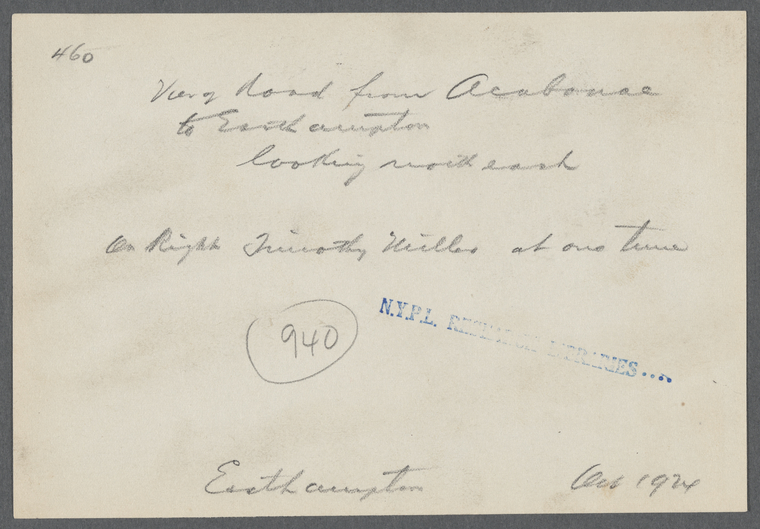 460
View of Road from Acabonac
to Easthampton
looking north east
On Right Timothy Miller at one time
940
N.Y.P.L. RESEARCH LIBRARIES....
Easthampton Oct 1924